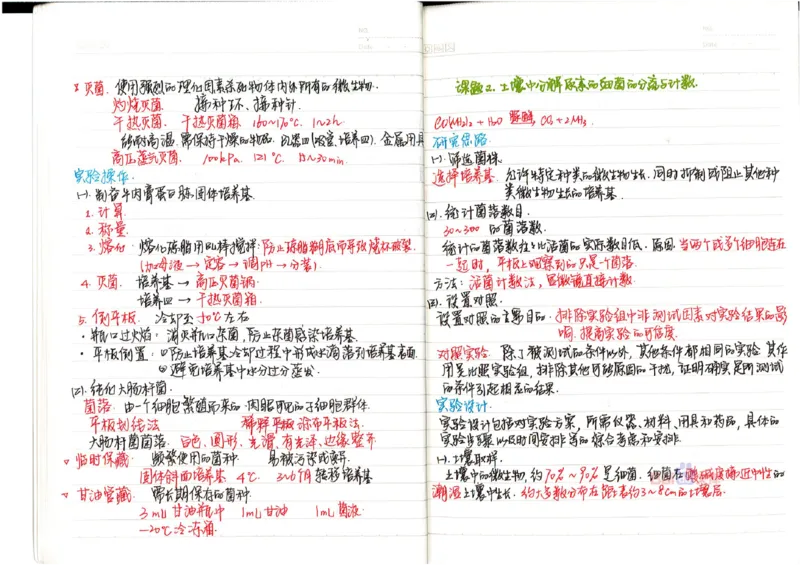 灭菌. 使用强烈的理化因素杀死物体内外所有的微生物.
灼烧灭菌 接种环、接种针.
干热灭菌. 干热灭菌箱 160~170℃. 1~2h.
能耐高温. 需保持干燥的物品. 金属用具
高压蒸气灭菌. 100kPa. 121℃. 15~30min.
实验操作.
(一). 制备牛肉膏蛋白胨固体培养基.
1. 计算.
2. 称量.
3. 熔化. 熔化琼脂用玻棒搅拌: 防止琼脂糊底而导致烧杯破裂.
→ 定容 → 调pH → 分装).
4. 灭菌. 培养基 → 高压灭菌锅.
培养皿 → 干热灭菌箱.
5. 倒平板. 冷却至50℃左右
• 瓶口过火焰: 消灭瓶口杂菌, 防止杂菌感染培养基.
• 平板倒置: ①防止培养基冷却过程中形成水滴落到培养基表面.
② 避免培养基中水分过分蒸发.
(二). 纯化大肠杆菌.
菌落. 由一个细胞繁殖而来的肉眼可见的子细胞群体.
平板划线法 稀释平板涂布平板法.
大肠杆菌菌落. 白色、圆形、光滑、有光泽、边缘整齐
临时保藏. 频繁使用的菌种. 易被污染或变异.
固体斜面培养基 4℃. 3~6个月转移培养基
甘油管藏. 需长期保存的菌种.
3mL 甘油瓶中 1mL甘油 1mL菌液.
-20℃冷冻箱.
课题2. 土壤中分解尿素的细菌的分离与计数.
CO(NH₂)₂ + H₂O 脲酶 CO₂ + 2NH₃.
研究思路.
(一). 筛选菌株.
选择培养基. 允许特定种类的微生物生长. 同时抑制或阻止其他种
类微生物生长的培养基.
(二). 统计菌落数目.
30~300 的菌落数.
统计的菌落数往往比活菌的实际数目低. 原因. 当两个或多个细胞连在
一起时, 平板上观察到的只是一个菌落.
方法: 活菌计数法, 显微镜直接计数.
(三). 设置对照.
设置对照的主要目的. 排除实验组中非测试因素对实验结果的影
响. 提高实验的可信度.
对照实验. 除了被测试的条件以外, 其他条件都相同的实验. 其作
用是比照实验组, 排除其他可能原因的干扰, 证明确实是所测试
的条件引起相应的结果.
实验设计.
实验设计包括对实验方案, 所需仪器、材料、用具和药品, 具体的
实验步骤以及时间安排等的综合考虑和安排.
(一). 土壤取样.
土壤中的微生物, 约70%~90%是细菌. 细菌在酸碱度接近中性的
潮湿土壤中生长. 绝大多数分布在距地表约3~8cm的土壤层.